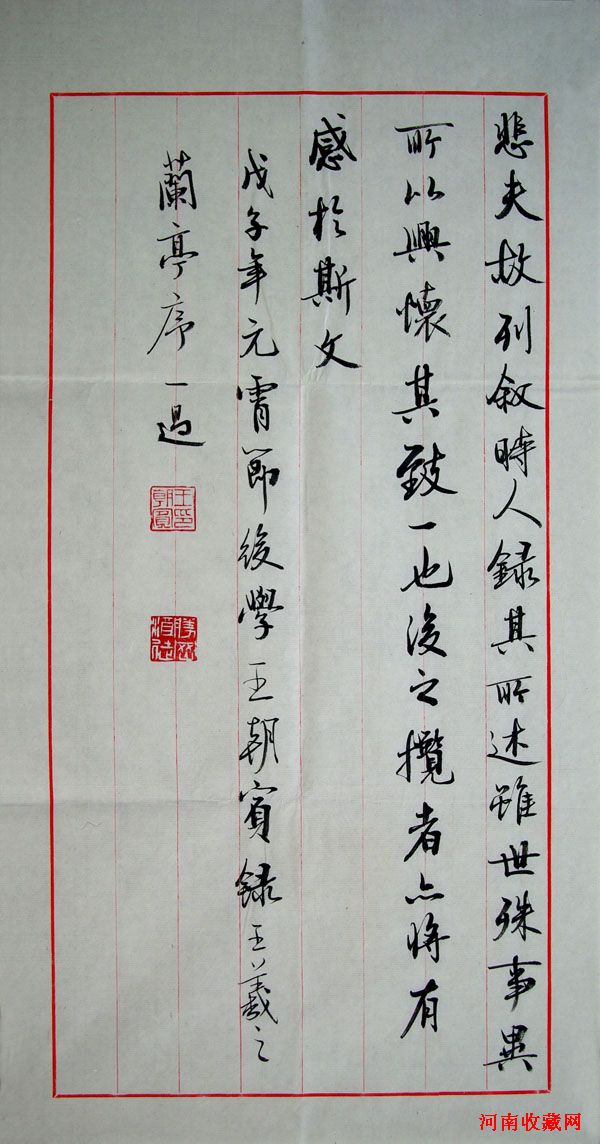 悲夫故列敘時人錄其所述雖世殊事異
所以興懷其致一也後之攬者亦將有
感於斯文
戊子年元宵節後學王朝賓錄王羲之
蘭亭序一過
王印朝賓
河南收藏网